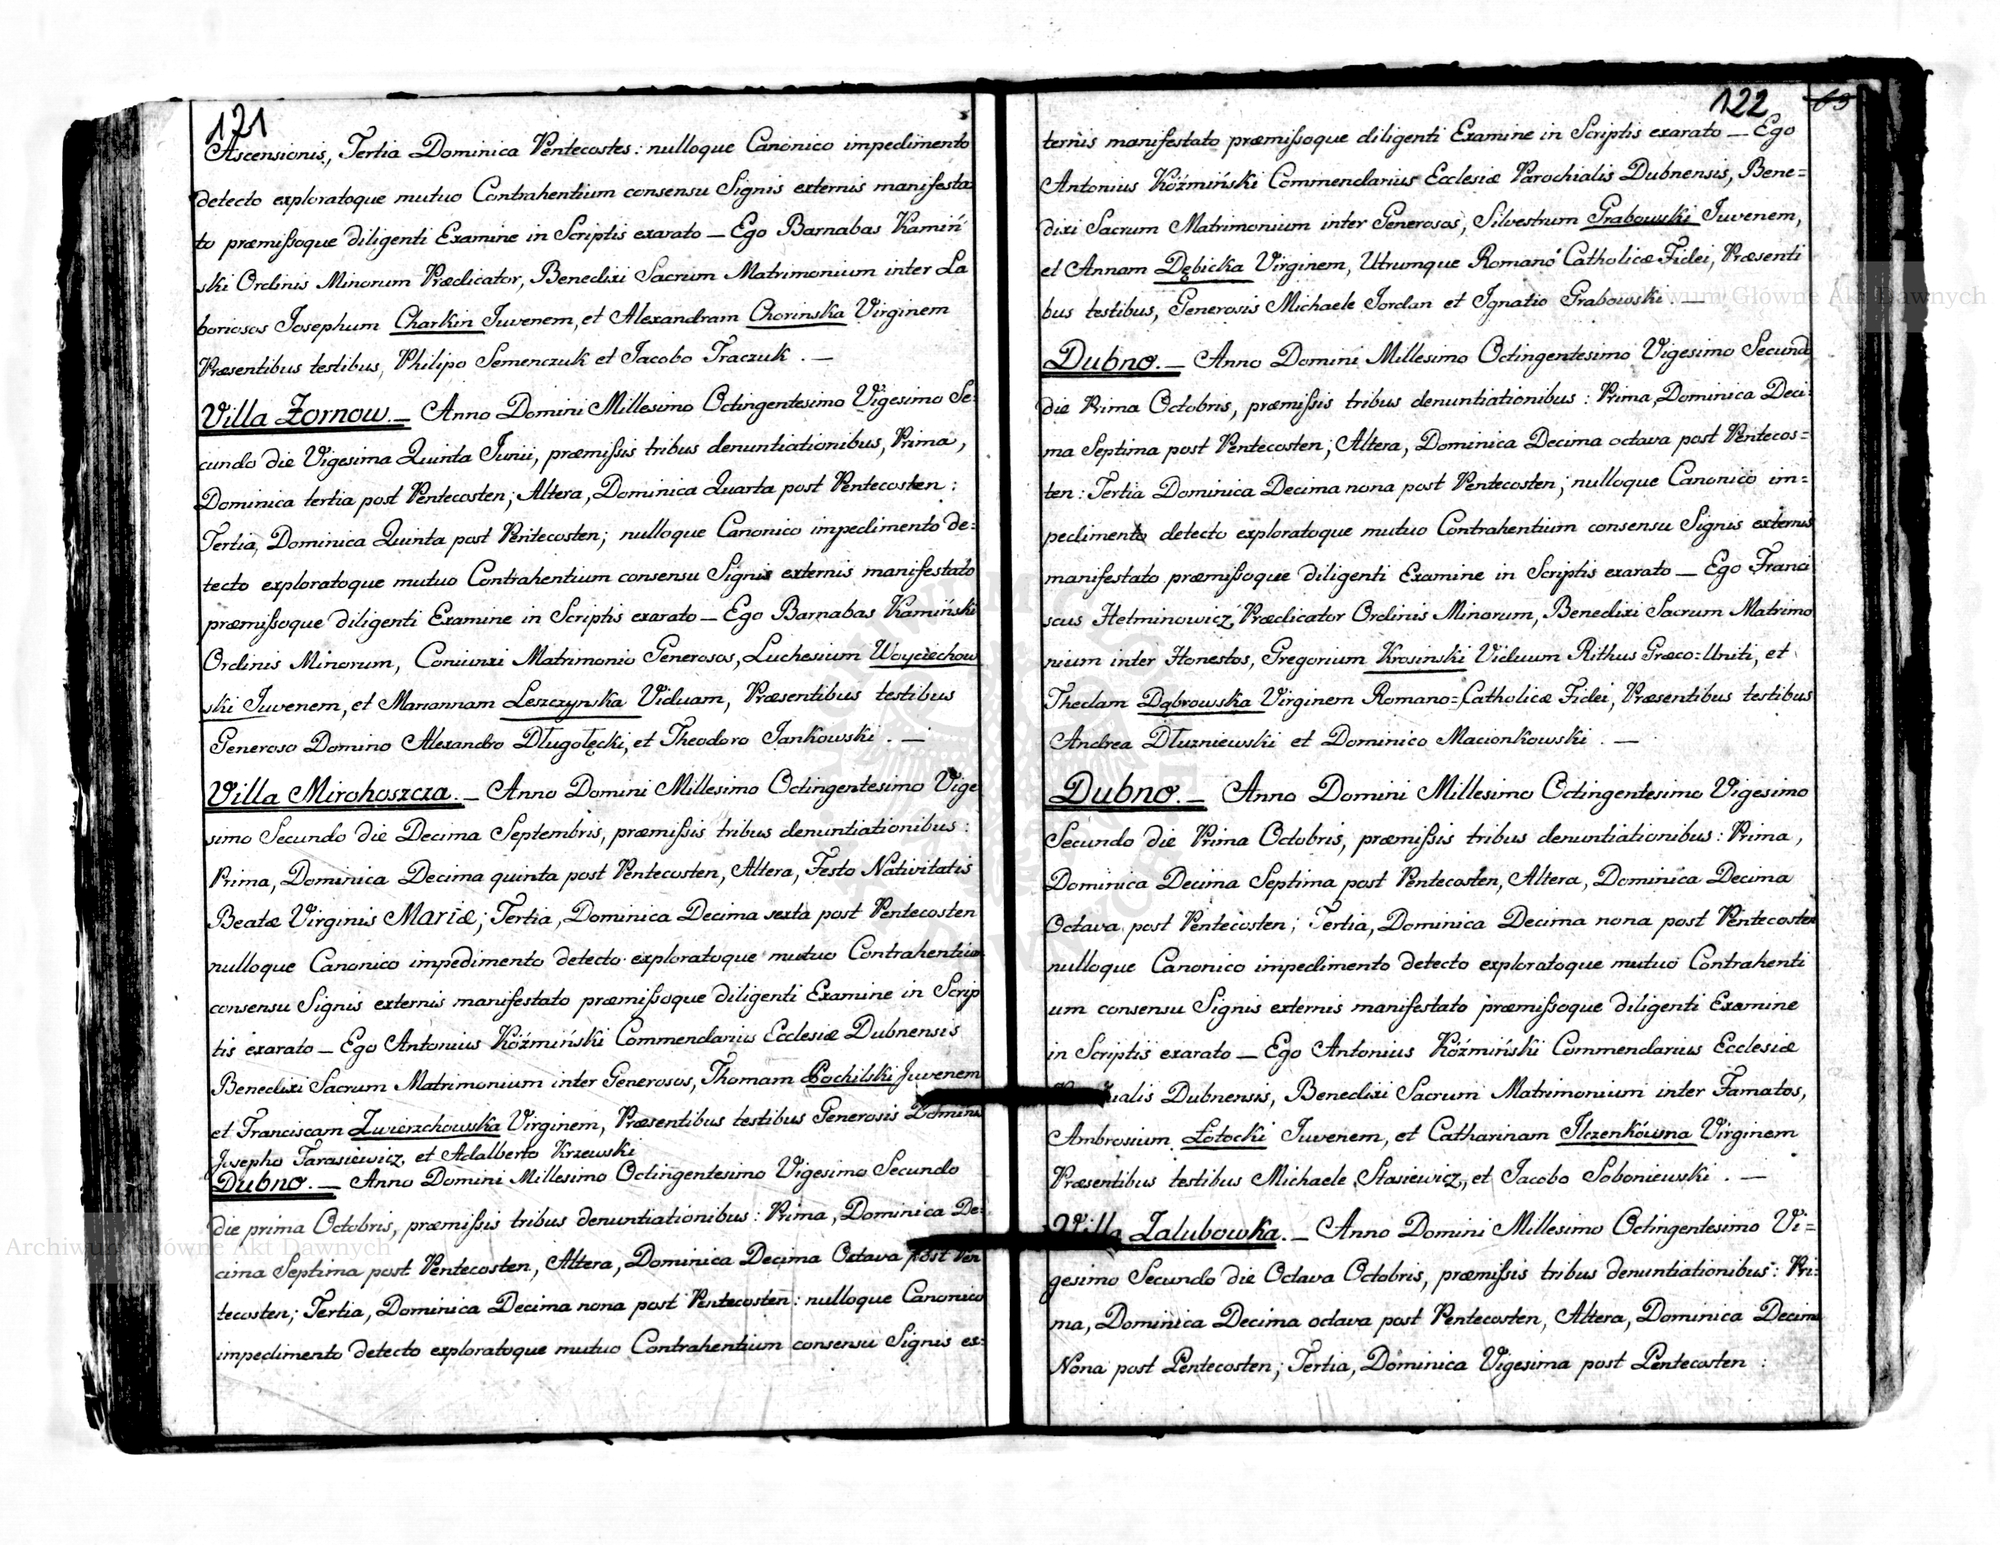 121
Ascensionis, Tertia Dominica Pentecostes: nulloque Canonico impedimento
detecto exploratoque mutuo Contrahentium consensu Signis externis manifesta
to præmißoque diligenti Examine in Scriptis exarato — Ego Barnabas Kamiń
ski Ordinis Minorum Prædicator, Benedixi Sacrum Matrimonium inter La
boriosos Josephum Charkin Juvenem, et Alexandram Chorinska Virginem
Præsentibus testibus, Philipo Semenczuk et Jacobo Traczuk . —
Villa Zornow. — Anno Domini Millesimo Octingentesimo Vigesimo Se-
cundo die Vigesima Quinta Junii, præmißis tribus denuntiationibus, Prima,
Dominica tertia post Pentecosten; Altera, Dominica Quarta post Pentecosten:
Tertia, Dominica Quinta post Pentecosten; nulloque Canonico impedimento de=
tecto exploratoque mutuo Contrahentium consensu Signis externis manifestato
præmißoque diligenti Examine in Scriptis exarato — Ego Barnabas Kamiński
Ordinis Minorum, Coniunxi Matrimonio Generosos, Luchesium Woyciechow
ski Juvenem, et Mariannam Leszczynska Viduam, Præsentibus testibus
Generoso Domino Alexandro Długołęcki, et Theodoro Jankowski . —
Villa Mirohoszcza. — Anno Domini Millesimo Octingentesimo Vige
simo Secundo die Decima Septembris, præmißis tribus denuntiationibus:
Prima, Dominica Decima quinta post Pentecosten, Altera, Festo Nativitatis
Beatæ Virginis Mariæ; Tertia, Dominica Decima sexta post Pentecosten
nulloque Canonico impedimento detecto exploratoque mutuo Contrahentium
consensu Signis externis manifestato præmißoque diligenti Examine in Scrip
tis exarato — Ego Antonius Kóźmiński Commendarius Ecclesiæ Dubnensis
Benedixi Sacrum Matrimonium inter Generosos, Thomam Pochilski Juvenem
et Franciscam Zwierzchowska Virginem, Præsentibus testibus Generosis Dominis
Josepho Tarasiewicz, et Adalberto Krzewski
Dubno. — Anno Domini Millesimo Octingentesimo Vigesimo Secundo
die prima Octobris, præmißis tribus denuntiationibus: Prima, Dominica De=
cima Septima post Pentecosten, Altera, Dominica Decima Octava post Pen
tecosten; Tertia, Dominica Decima nona post Pentecosten: nulloque Canonico
impedimento detecto exploratoque mutuo Contrahentium consensu Signis ex=
122 63
ternis manifestato præmißoque diligenti Examine in Scriptis exarato — Ego
Antonius Kóźmiński Commendarius Ecclesiæ Parochialis Dubnensis, Bene=
dixi Sacrum Matrimonium inter Generosos, Silvestrum Grabowski Juvenem,
et Annam Dębicka Virginem, Utrumque Romano Catholicæ Fidei, Præsenti
bus testibus, Generosis Michaele Jordan et Ignatio Grabowski —
Dubno. — Anno Domini Millesimo Octingentesimo Vigesimo Secundo
die Prima Octobris, præmißis tribus denuntiationibus: Prima, Dominica Deci-
ma Septima post Pentecosten; Altera, Dominica Decima octava post Pentecos=
ten: Tertia Dominica Decima nona post Pentecosten; nulloque Canonico im=
pedimento detecto exploratoque mutuo Contrahentium consensu Signis externis
manifestato præmißoque diligenti Examine in Scriptis exarato — Ego Franci
scus Helminowicz, Prædicator Ordinis Minorum, Benedixi Sacrum Matrimo
nium inter Honestos, Gregorium Krosinski Viduum Rithus Græco=Uniti, et
Theclam Dąbrowska Virginem Romano=Catholicæ Fidei, Præsentibus testibus
Andrea Dłuzniewski et Dominico Macionkowski . —
Dubno. — Anno Domini Millesimo Octingentesimo Vigesimo
Secundo die Prima Octobris, præmißis tribus denuntiationibus: Prima,
Dominica Decima Septima post Pentecosten, Altera, Dominica Decima
Octava post Pentecosten; Tertia, Dominica Decima nona post Pentecosten
nulloque Canonico impedimento detecto exploratoque mutuo Contrahenti
um consensu Signis externis manifestato præmißoque diligenti Examine
in Scriptis exarato — Ego Antonius Kóźmiński Commendarius Ecclesiæ
Dubnensis, Benedixi Sacrum Matrimonium inter Famatos,
Ambrosium Łotocki Juvenem, et Catharinam Ilczenkówna Virginem
Præsentibus testibus Michaele Stasiewicz, et Jacobo Soboniewski . —
Villa Zalubowka. — Anno Domini Millesimo Octingentesimo Vi=
gesimo Secundo die Octava Octobris, præmißis tribus denuntiationibus: Pri=
ma, Dominica Decima octava post Pentecosten, Altera, Dominica Decima
Nona post Pentecosten; Tertia, Dominica Vigesima post Pentecosten :
Archiwum Główne Akt Dawnych
Archiwum Główne Akt Dawnych